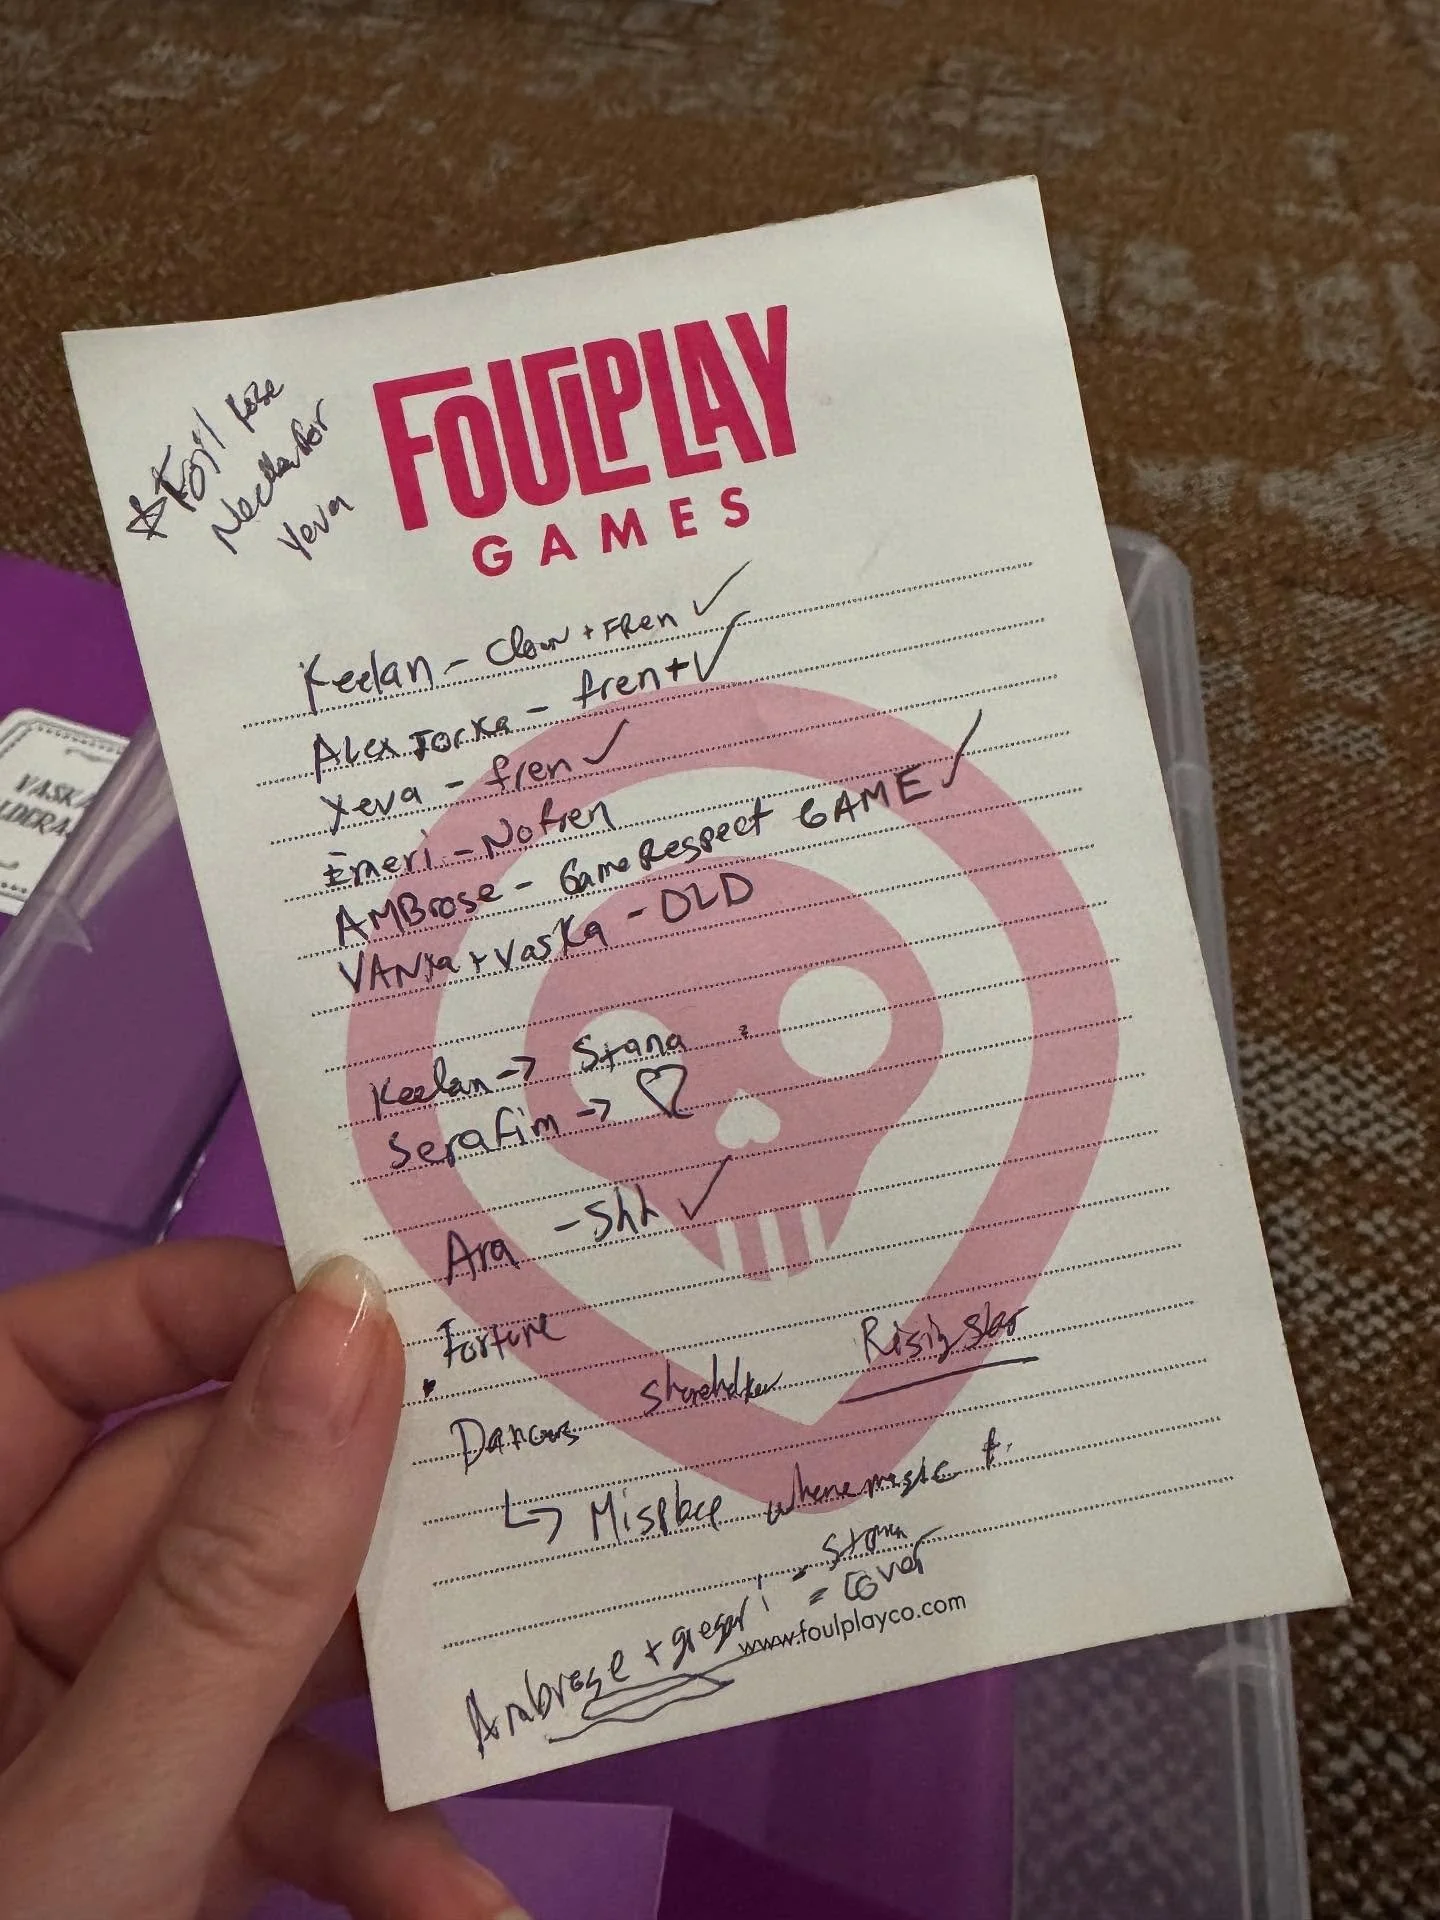 FOULPLAY
GAMES
Yeva
Keelan - Clown + FRen ✓
Alex Jorka - fren + ✓
Yeva - fren ✓
Emeri - No fren
AMBrose - Game Respect GAME ✓
VANYa + VasKa - OLD
Keelan -> Stana ?
Serafim -> ♡
Ara - Shh ✓
Fortune
Dancers shareholder Rising star
↳ where magic
Ambrose + gregori - stolen
= cover
www.foulplayco.com
VASKA